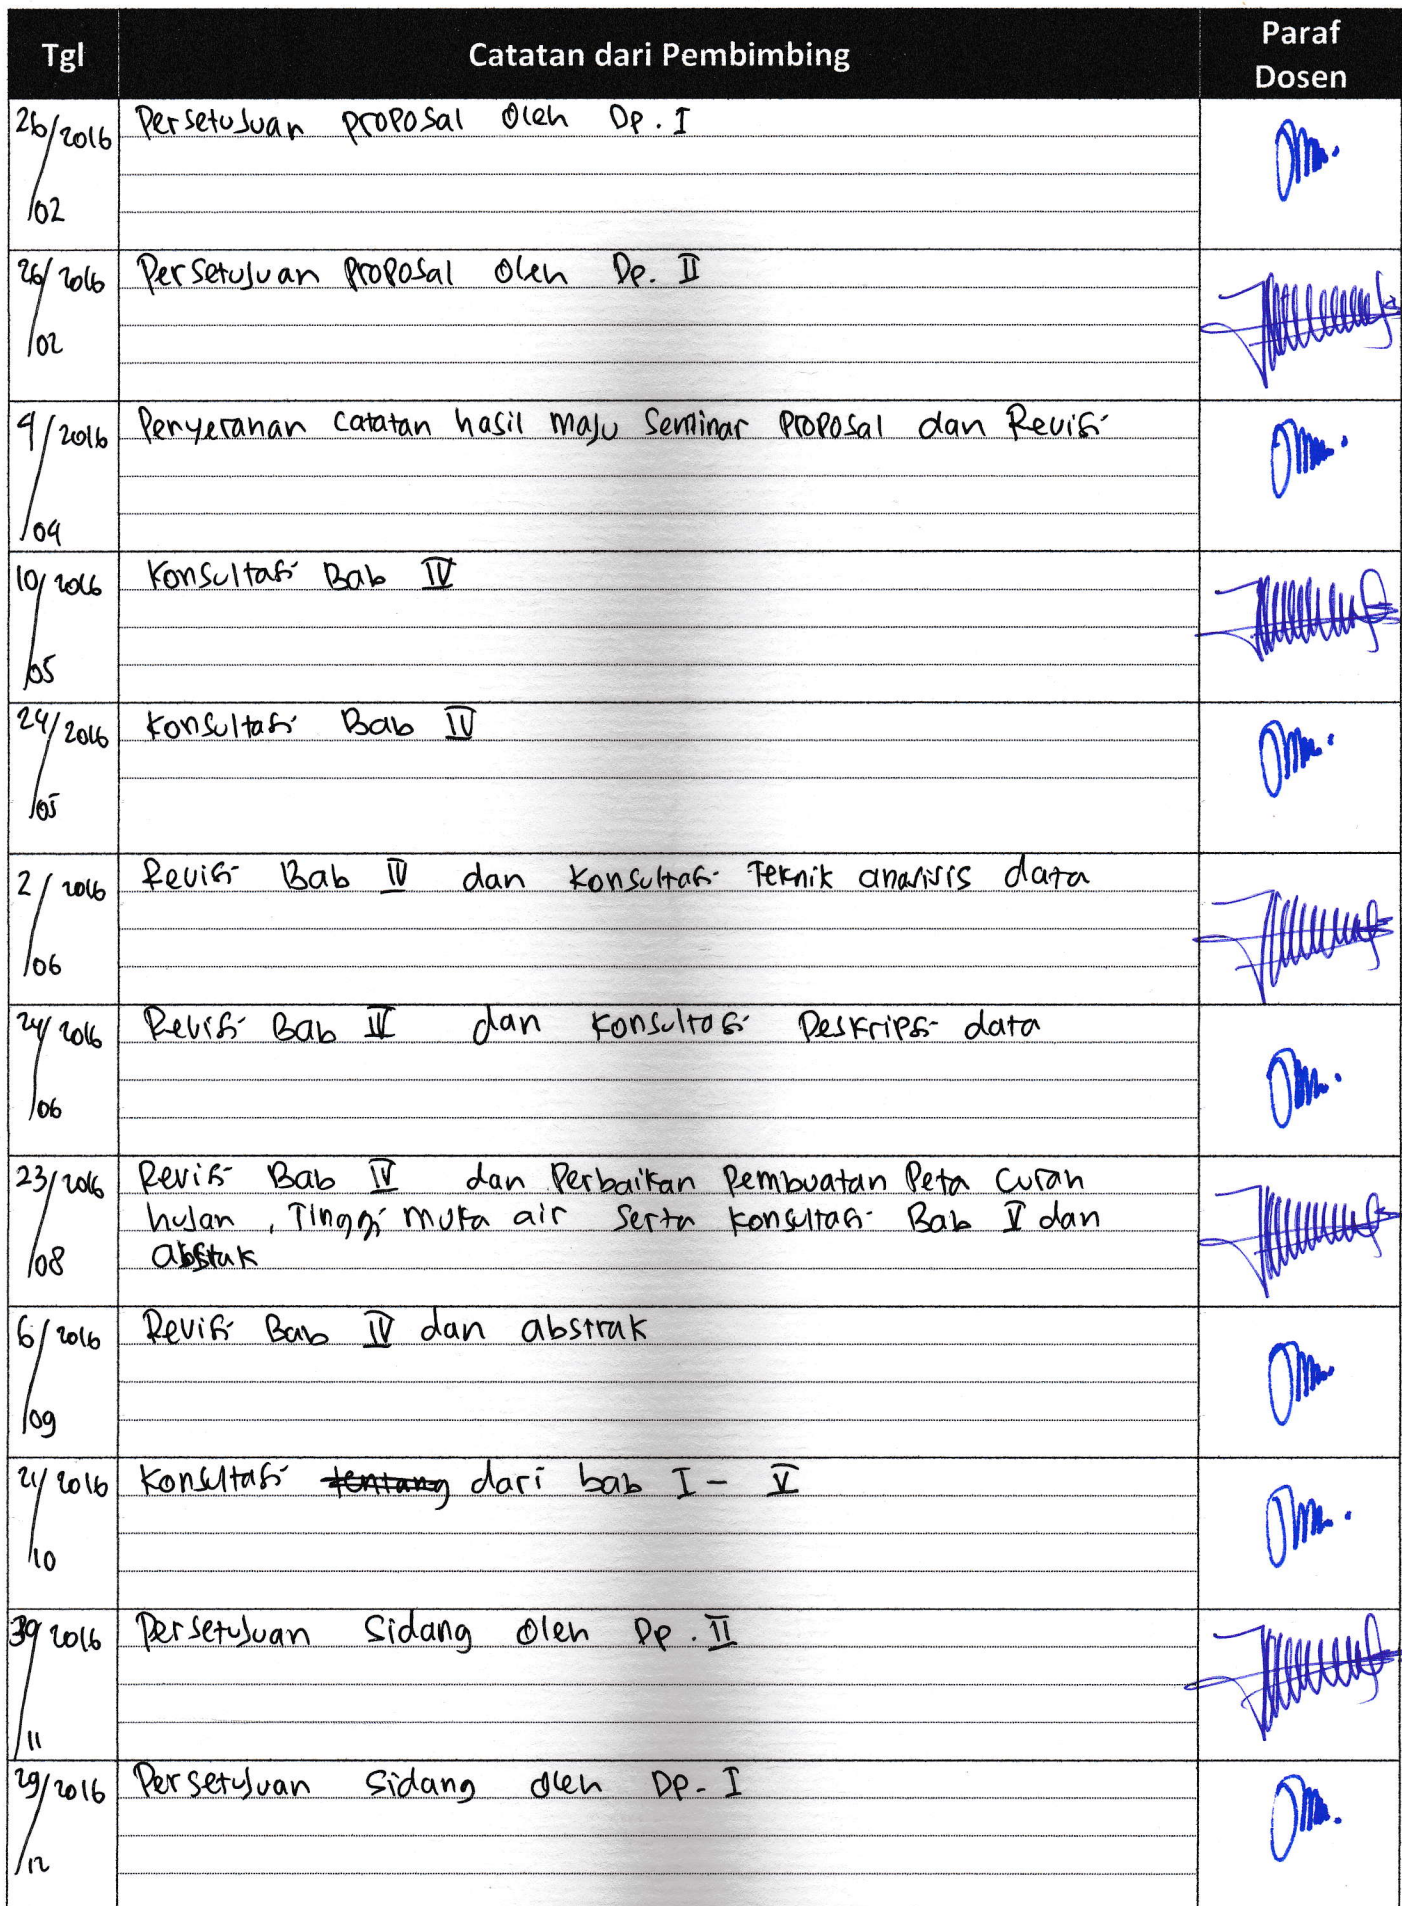 Tgl
Catatan dari Pembimbing
Paraf
Dosen
26/2016
/02
Persetujuan proposal oleh Dp. I
26/2016
/02
Persetujuan proposal oleh Dp. II
4/2016
/04
Penyerahan catatan hasil maju seminar proposal dan Revisi
10/2016
/05
Konsultasi Bab IV
24/2016
/05
Konsultasi Bab IV
2/2016
/06
Revisi Bab IV dan Konsultasi Teknik analisis data
24/2016
/06
Revisi Bab IV dan Konsultasi Deskripsi data
23/2016
/08
Revisi Bab IV dan Perbaikan Pembuatan Peta Curah
hujan, Tinggi muka air serta konsultasi Bab V dan
abstak
6/2016
/09
Revisi Bab IV dan abstrak
21/2016
/10
Konsultasi tentang dari bab I - V
/2016
/11
Persetujuan Sidang oleh Dp. II
29/2016
/12
Persetujuan Sidang oleh Dp- I